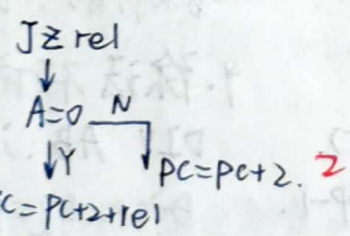 JZ rel
A=0 N
Y
PC=PC+2. 2
C=PC+2+rel